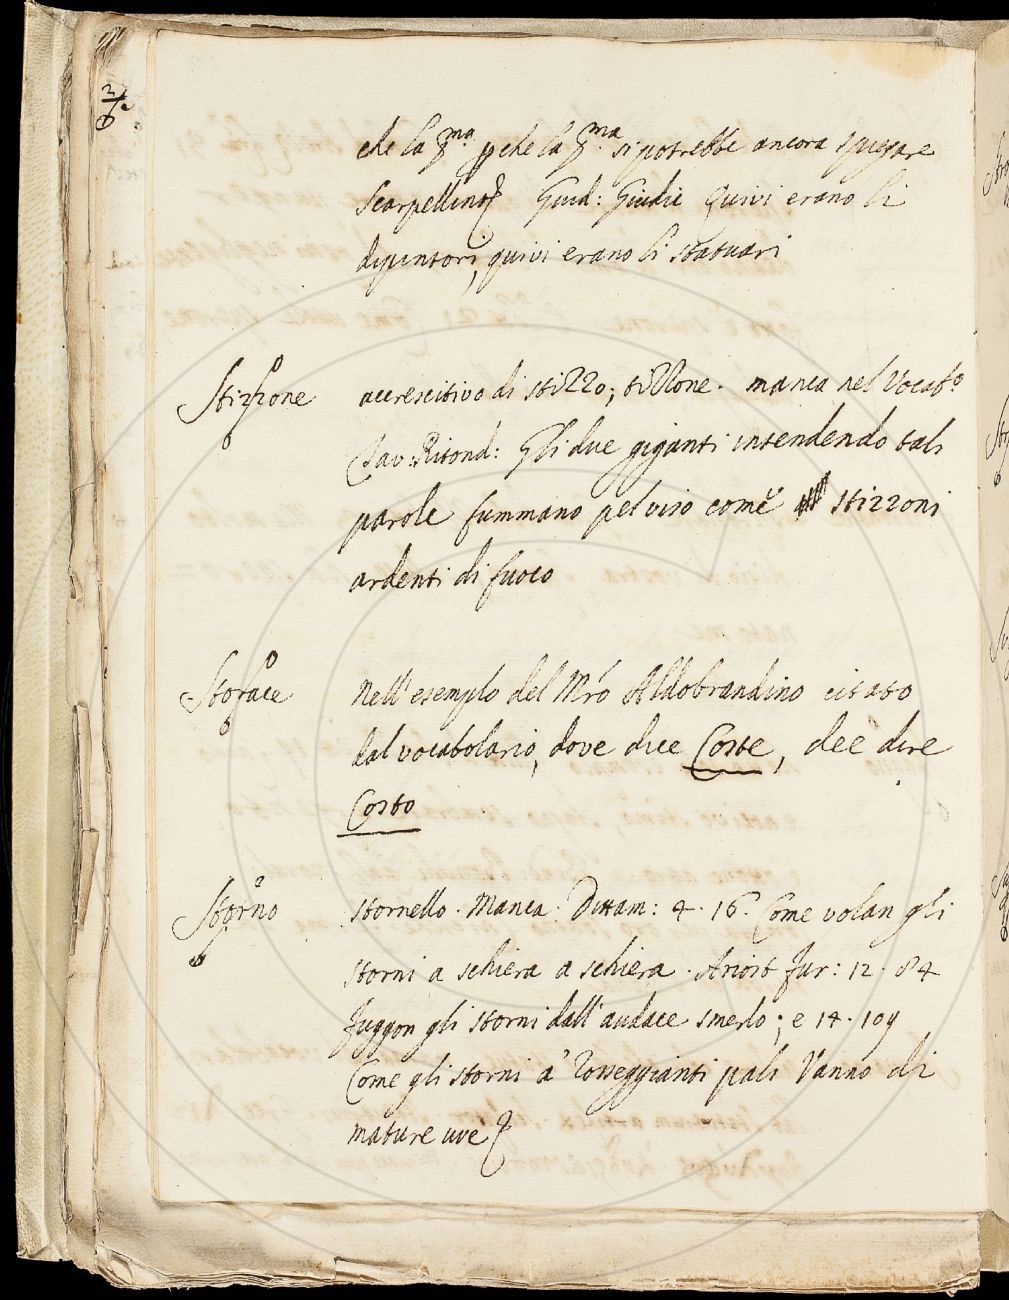 che la pma perche la pma si potrebbe ancora spiegare
Scarpellino Guid: Giudic Quivi erano li
dipintori, quivi erano li statuari
Stizzone accrescitivo di stizzo; tizzone. manca nel Vocabo
Tav: Ritond: Gli due giganti intendendo tali
parole fummano pel viso come stizzoni
ardenti di fuoco
Storace Nell'esempio del Mro Aldobrandino citato
dal vocabolario, dove dice Coste, dee dire
Costo
Storno Stornello. Manca. Dittam: 4. 16. Come volan gli
storni a schiera a schiera. Ariost fur: 12. 84
fuggon gli storni dall'audace smerlo; e 14. 109
Come gli storni a' rosseggianti pali Vanno di
mature uve